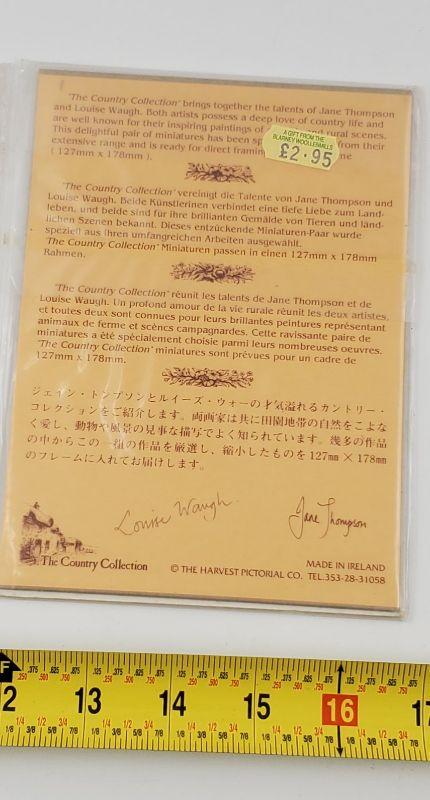 "The Country Collection" brings together the talents of Jane Thompson
and Louise Waugh. Both artists possess a deep love of country life and
are well known for their inspiring paintings of rural scenes.
This delightful pair of miniatures has been from their
extensive range and is ready for direct
( 127mm x 178mm ).
A GIFT FROM THE
BLARNEY WOOLLEN MILLS
£2·95
"The Country Collection" vereinigt die Talente von Jane Thompson und
Louise Waugh. Beide Künstlerinen verbindet eine tiefe Liebe zum Land-
leben, und beide sind für ihre brillanten Gemälde von Tieren und länd-
lichen Szenen bekannt. Dieses entzückende Miniaturen-Paar wurde
speziell aus ihren umfangreichen Arbeiten ausgewählt.
"The Country Collection" Miniaturen passen in einen 127mm x 178mm
Rahmen.
"The Country Collection" réunit les talents de Jane Thompson et de
Louise Waugh. Un profond amour de la vie rurale réunit les deux artistes,
et toutes deux sont connues pour leurs brillantes peintures représentant
animaux de ferme et scèncs campagnardes. Cette ravissante paire de
miniatures a été spécialement choisie parmi leurs nombreuses oeuvres.
"The Country Collection" miniatures sont prévues pour un cadre de
127mm x 178mm.
ジェイン・トンプソンとルイーズ・ウォーの才気溢れるカントリー・
コレクションをご紹介します。両画家は共に田園地帯の自然をこよな
く愛し、動物や風景の見事な描写でよく知られています。幾多の作品
の中からこの一組の作品を厳選し、縮小したものを127㎜×178㎜
のフレームに入れてお届けします。
Louise Waugh.
Jane Thompson
The Country Collection
© THE HARVEST PICTORIAL CO.
MADE IN IRELAND
TEL.353-28-31058
F
2 13 14 15 16 17